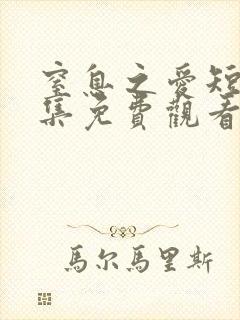 窒息之愛短
集免費觀看
馬尔馬里斯